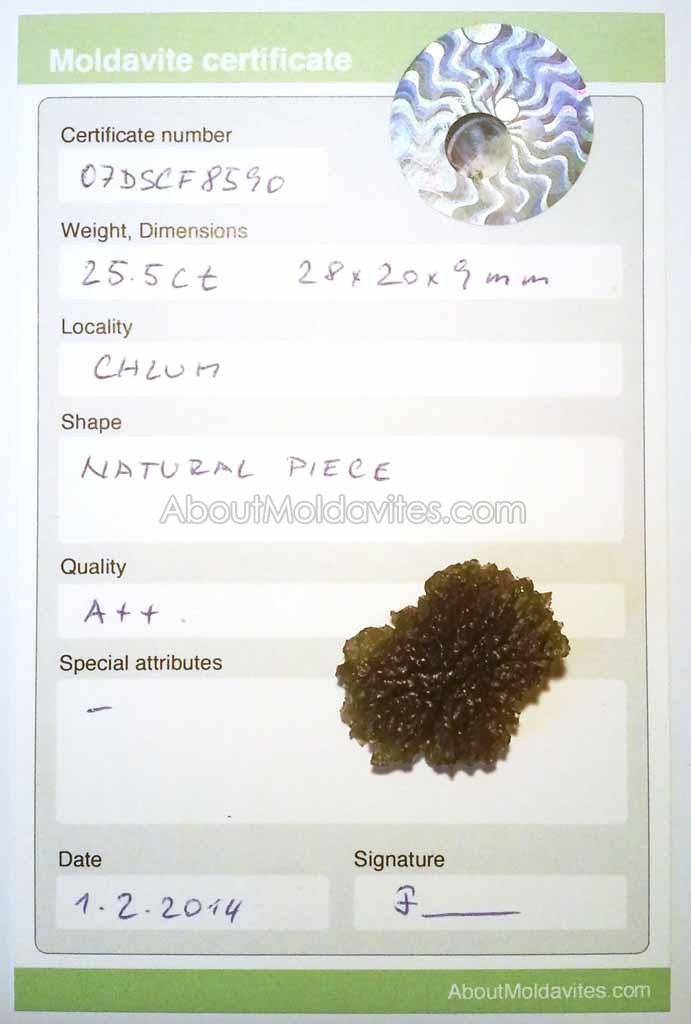 Moldavite certificate
Certificate number
07DSCF8590
Weight, Dimensions
25.5ct 28x20x9mm
Locality
CHLUM
Shape
NATURAL PIECE
AboutMoldavites.com
Quality
A++
Special attributes
-
Date
Signature
1.2.2014
AboutMoldavites.com